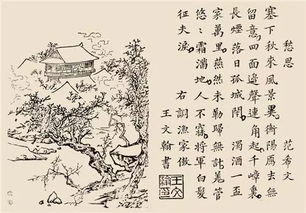 愁思 范希文
塞下秋來風景異衡陽雁去無
留意四面邊聲連角起千嶂裏
長煙落日孤城閉 濁酒一盃
家萬里燕然未勒歸無計羌管
悠〻霜滿地人不寐將軍白髮
征夫淚 右詞漁家傲
王文翰書